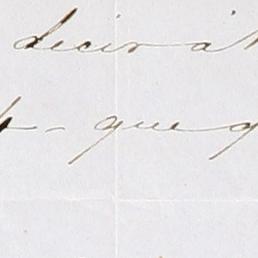 decir á
que